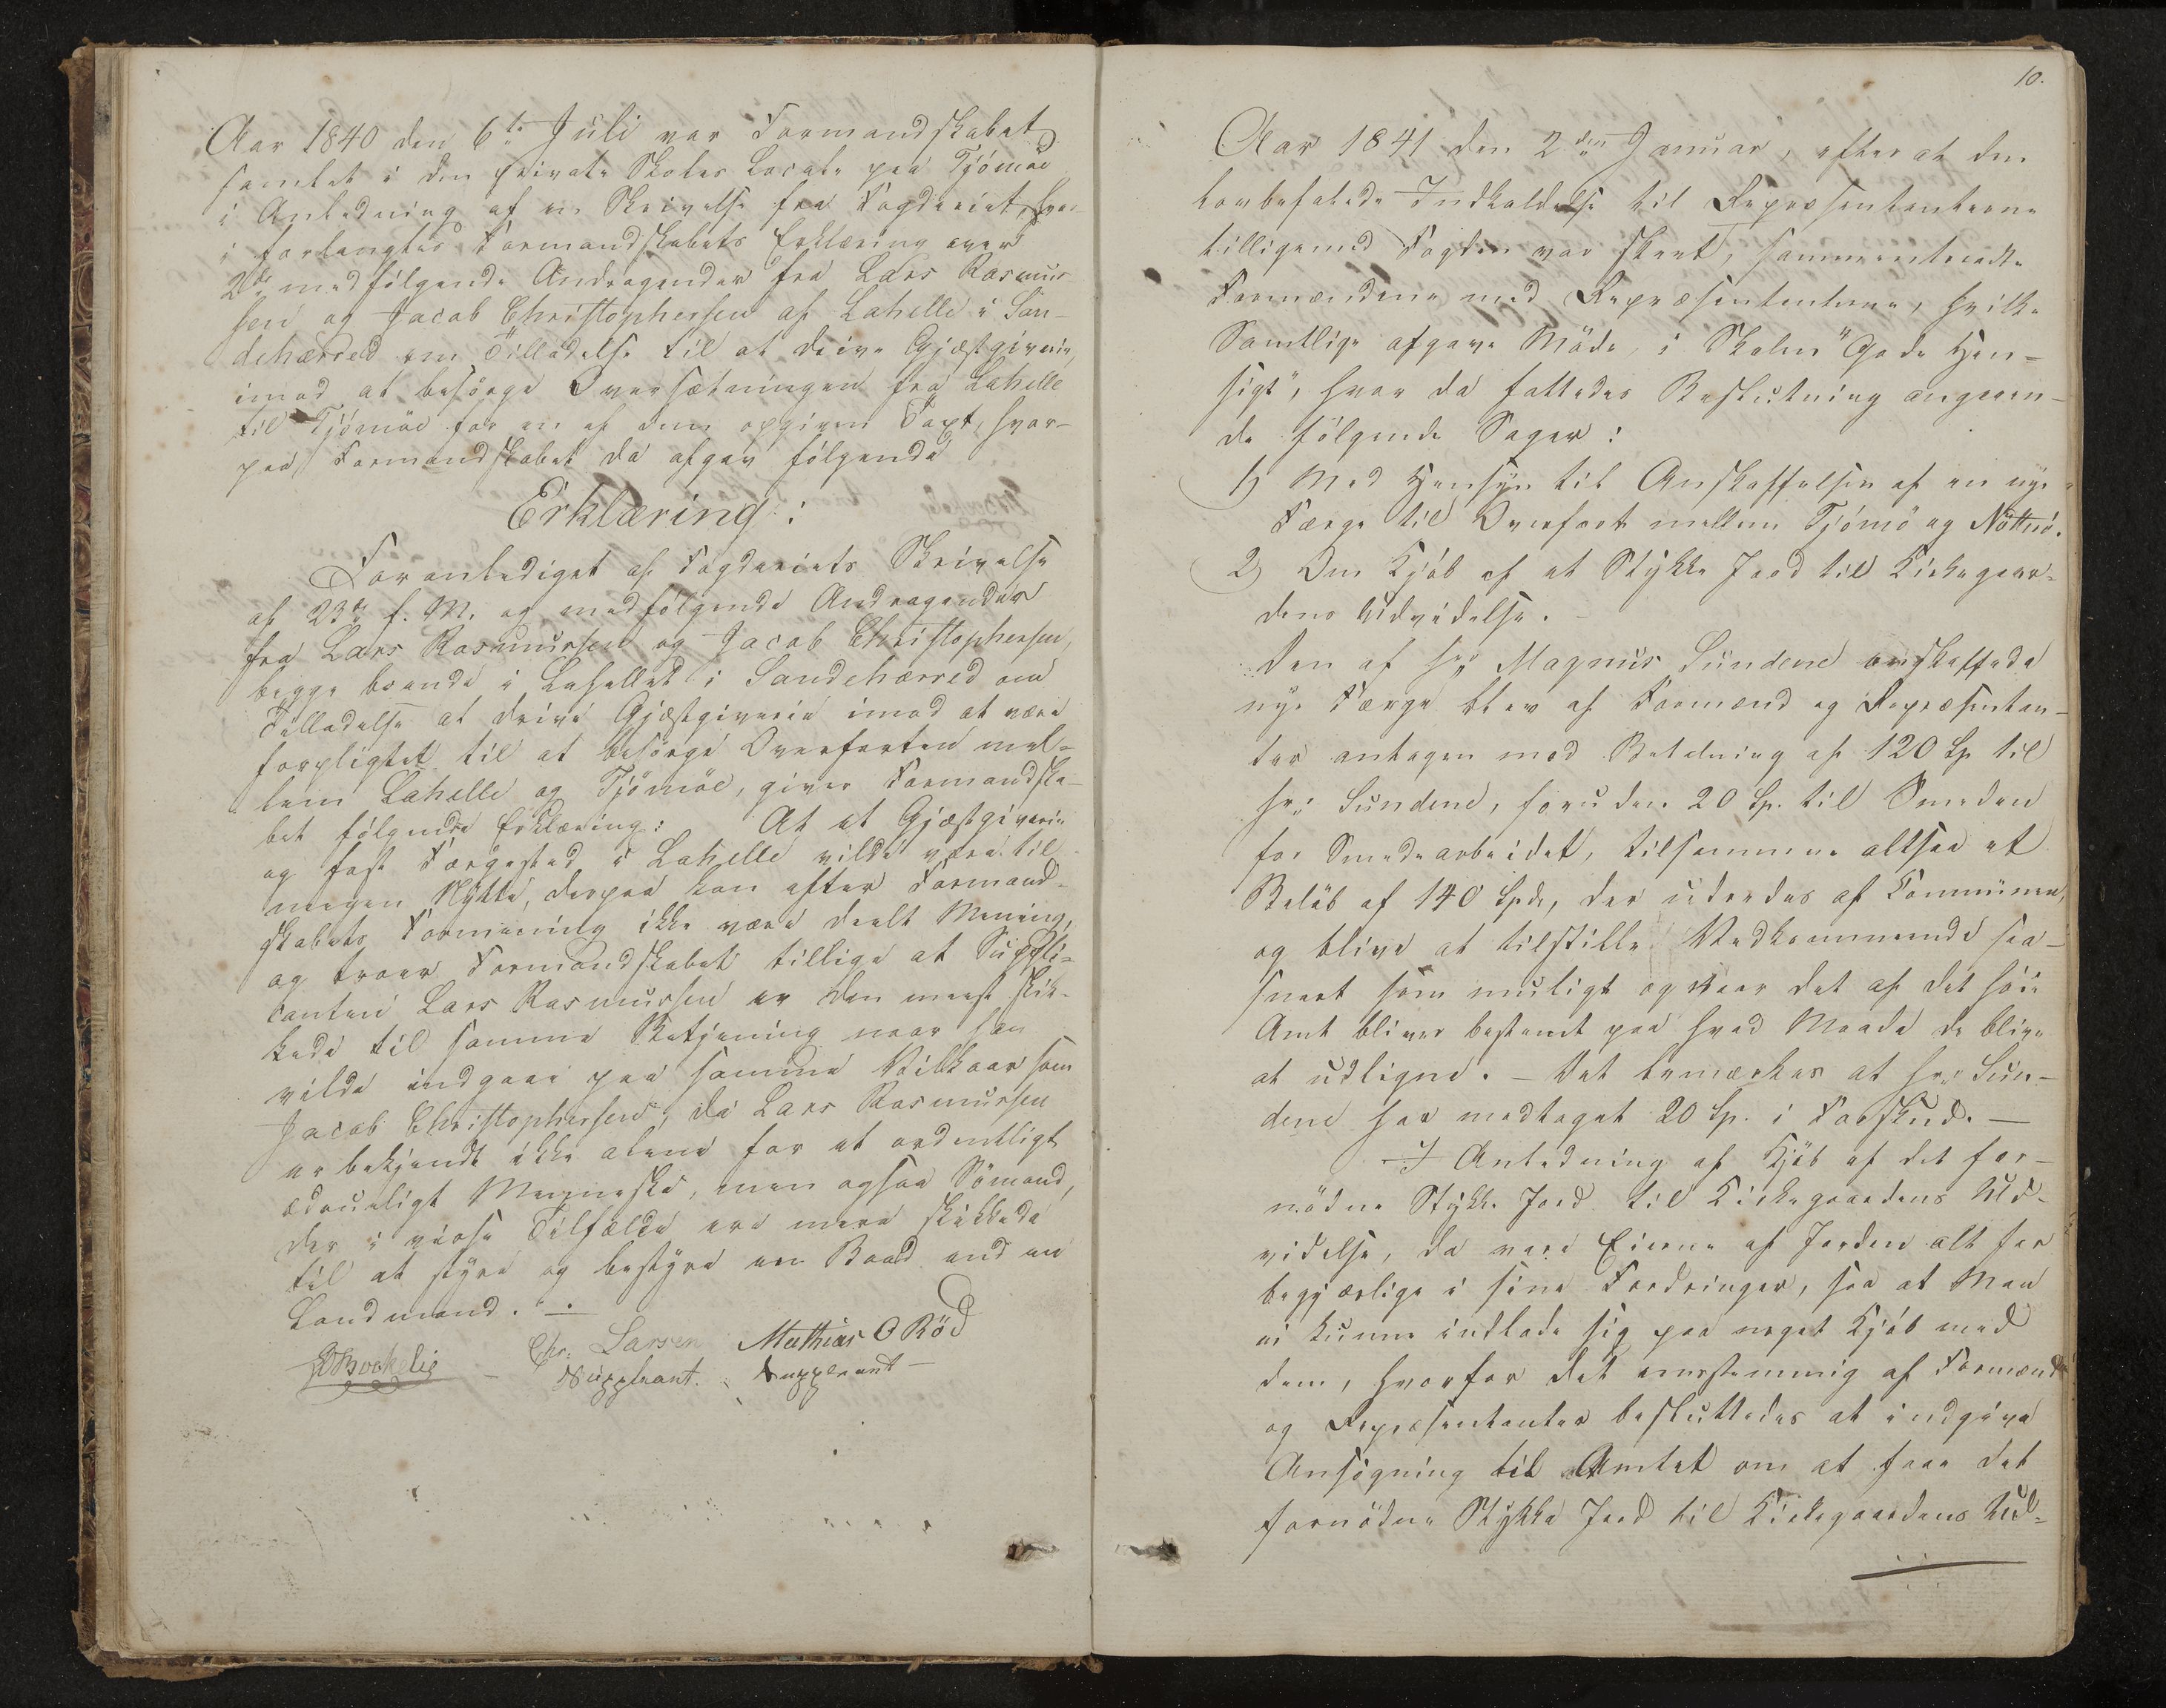 Aar 1840 den 6te Juli var Formandskabet
samlet i den private Skoles Locale paa Tjömöe
i Anledning af en Skrivelse fra Fogderiet, hvor-
i forlangtes Formandskabets Erklæring over
2de medfölgende Andragender fra Lars Rasmus
sen og Jacob Christophersen af Lahelle i San-
dehærred om Tilladelse til at drive Gjæstgiverie,
imod at besörge Oversætningen fra Lahelle
til Tjömöe for en af dem opgiven Taxt, hvor-
paa Formandskabet da afgav fölgende
Erklæring:
Foranlediget af Fogderiets Skrivelse
af 23de f. M. og medfölgende Andragender
fra Lars Rasmussen og Jacob Christophersen,
begge boende i Lahellet i Sandehærred om
Tilladelse at drive Gjæstgiverie imod at være
forpligtet til at besörge Overfarten mel-
lem Lahelle og Tjömöe, giver Formandska-
bet fölgende Erklæring: At et Gjæstgiverie
og fast Færgested i Lahelle vilde være til
megen Nytte, derpaa kan efter Formand-
skabets Formening ikke være deelt Mening,
og troer Formandskabet tillige at Suppli-
canten Lars Rasmussen er den meest skik-
kede til samme Betjening naar han
vilde indgaae paa samme Vilkaar som
Jacob Christophersen, da Lars Rasmussen
er bekjendt ikke alene for et ordentligt
ædrueligt Menneske, men ogsaa Sömand,
der i visse Tilfælde ere mere skikkede
til at styre og bestyre en Baad end en
Landmand. —
Chr. Larsen Mathias O Röd
Suppleant. Suppleant —
10.
Aar 1841 den 2den Januar, efter at den
lovbefalede Indkaldelse til Repræsentanterne
tilligemed Fogden var skeet, sammentraadte
Formændene med Repræsentanterne, hvilke
Samtlige afgave Möde, i Skolen "Gode Hen-
sigt", hvor da fattedes Beslutning angaaen-
de fölgende Sager:
1) Med Hensyn til Anskaffelsen af en nye
Færge til Overfart mellem Tjömö og Nötterö.
2) Om Kjöb af et Stykke Jord til Kirkegaar-
dens Udvidelse. —
Den af hr. Magnus Sundene anskaffede
nye Færge blev af Formænd og Repræsentan-
ter antagen mod Betalning af 120 Sp til
hr. Sundene, foruden 20 Sp. til Smeden
for Smedearbeidet, tilsammen altsaa et
Belöb af 140 Spd., der udredes af Communen,
og blive at tilstille Vedkommende saa-
snart som muligt og naar det af det höie
Amt bliver bestemt paa hvad Maade de blive
at udligne. — Det bemærkes at hr. Sun-
dene har modtaget 20 Sp. i Forskud. —
I Anledning af Kjöb af det for-
nödne Stykke Jord til Kirkegaardens Ud-
videlse, da vare Eierne af Jorden alt for
begjærlige i sine Fordringer, saa at Man
ei kunne indlade sig paa noget Kjöb med
dem, hvorfor det eenstemmig af Formænd
og Repræsentanter besluttedes at indgive
Ansögning til Amtet om at faae det
fornödne Stykke Jord til Kirkegaardens Ud-